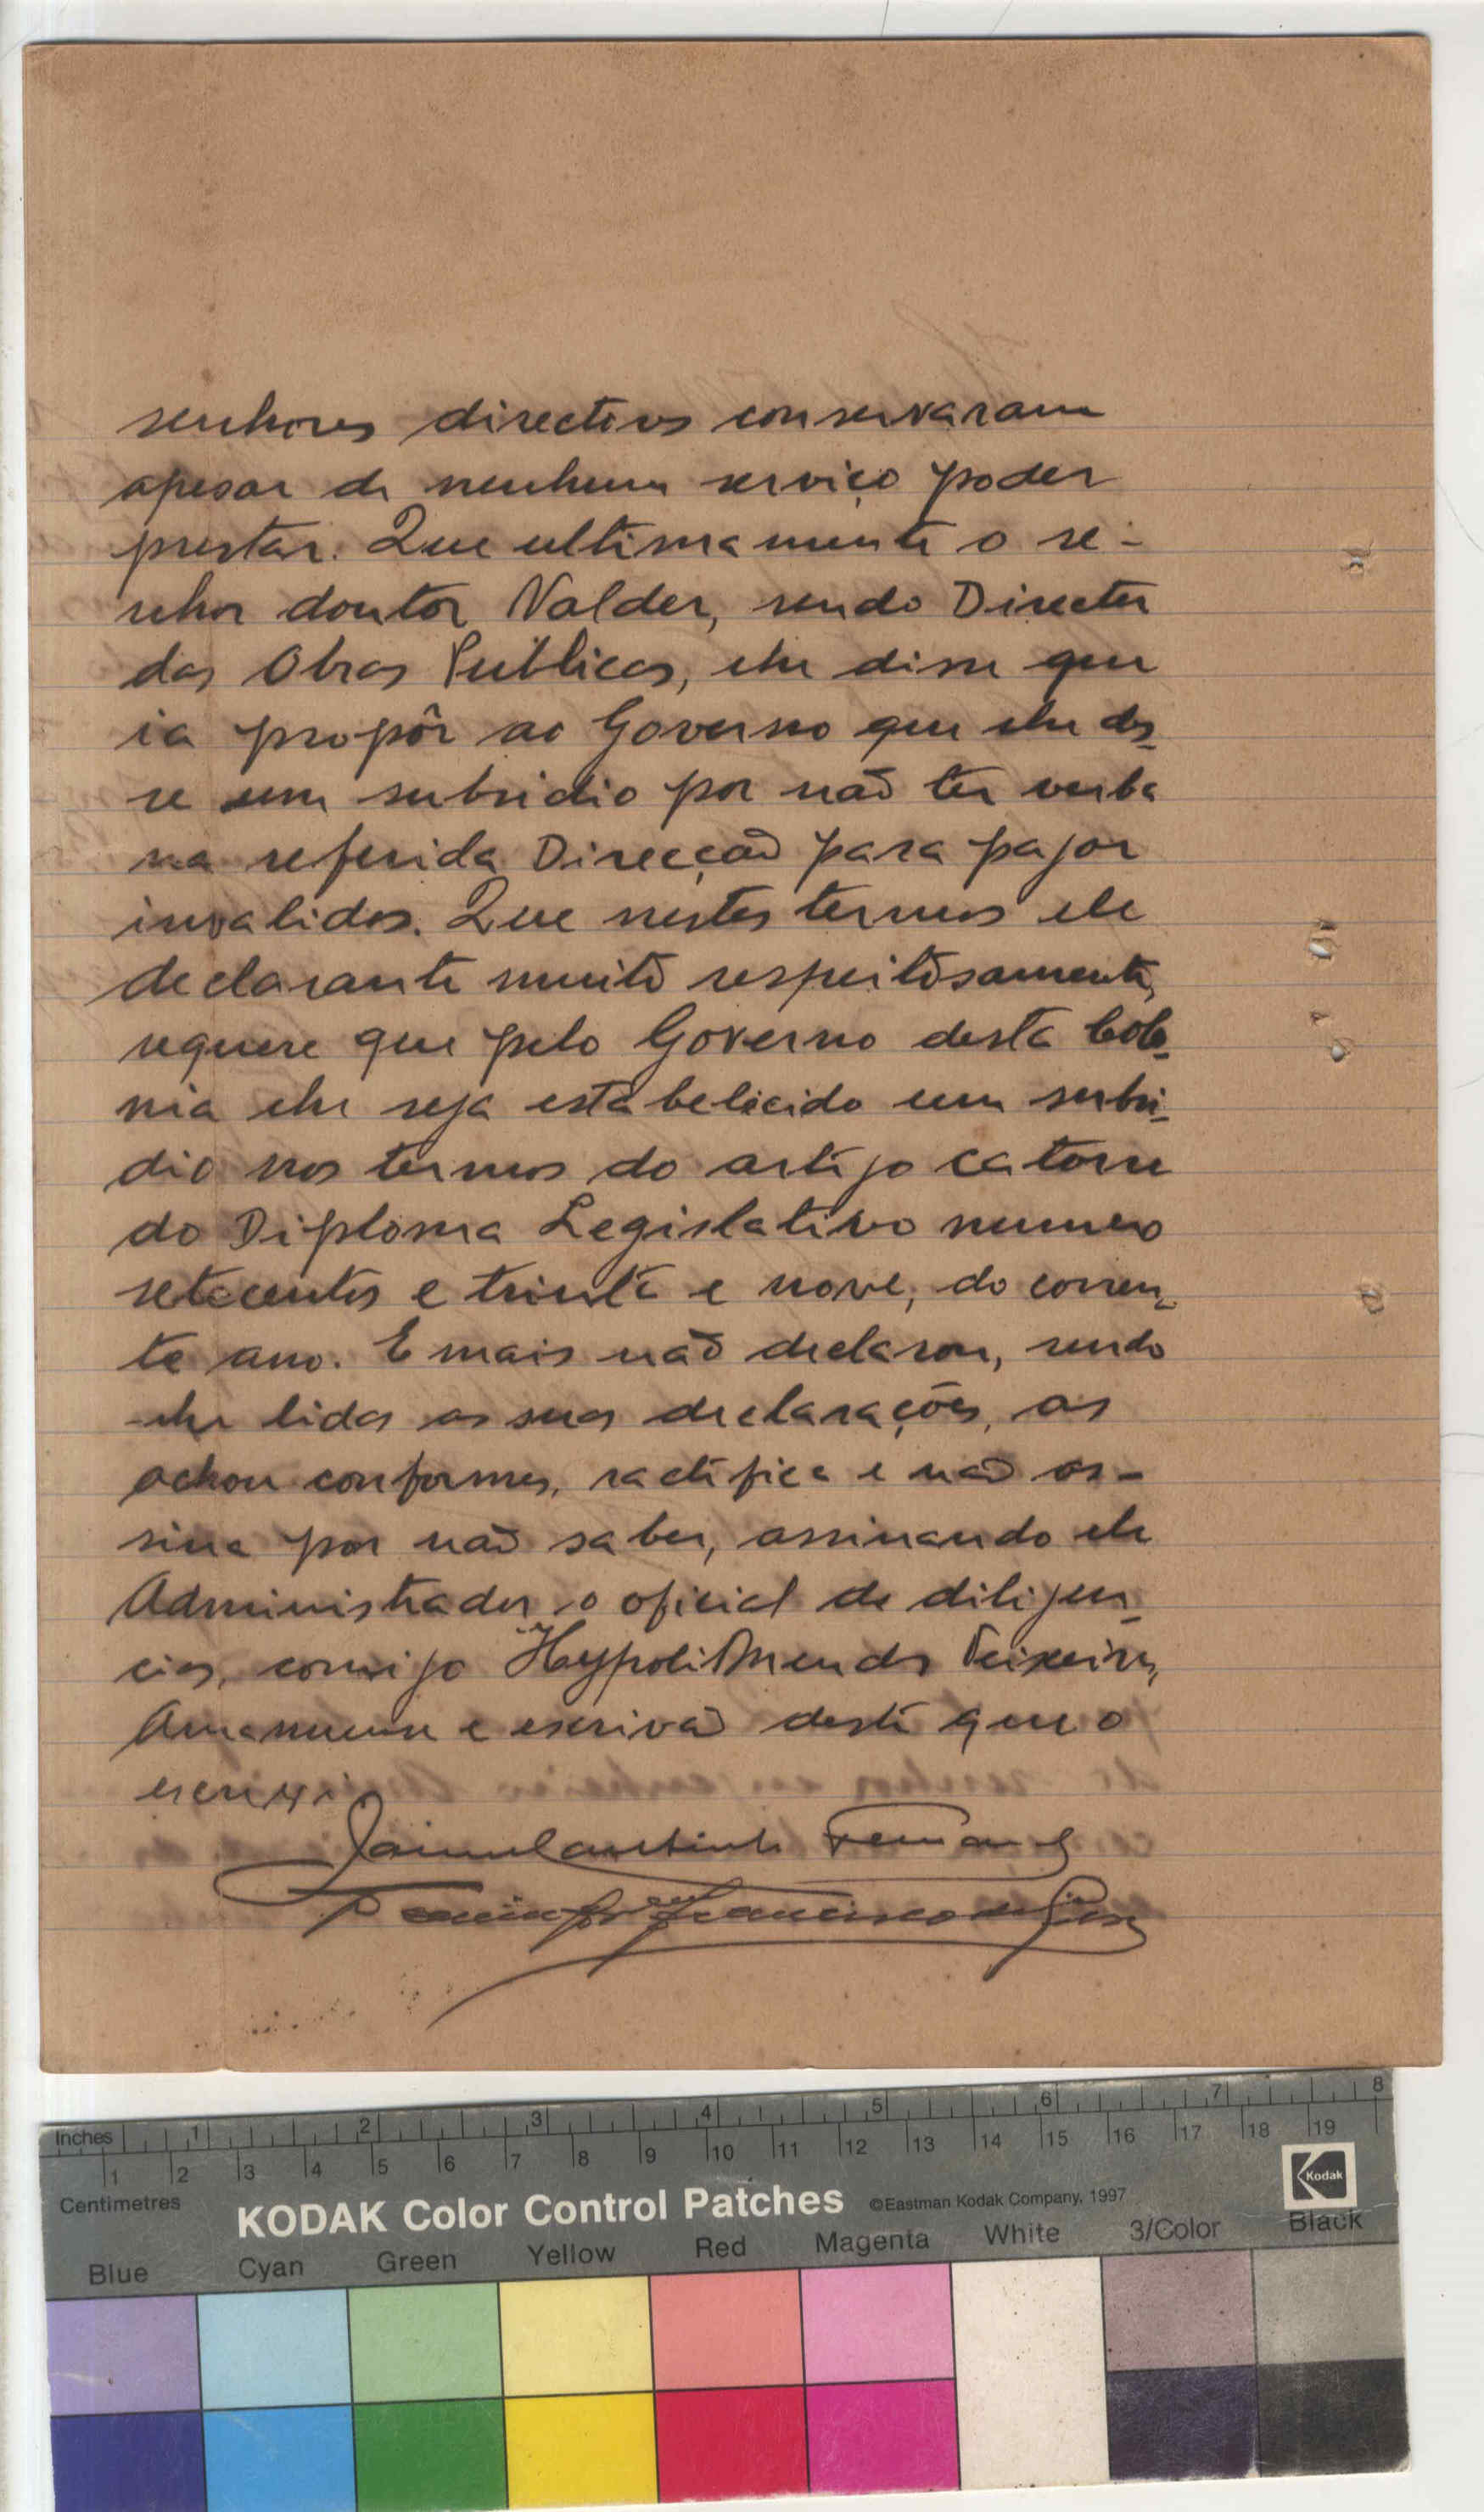 senhores directores conservaram
apesar de nenhum serviço poder
prestar. Que ultimamente o se-
nhor doutor Valdez, sendo Director
das Obras Publicas, lhe disse que
ia propôr ao Governo que lhe des-
se um subsidio por não ter verba
na referida Direcção para pagar
invalidos. Que nestes termos ele
declarante muito respeitosamente,
requere que pelo Governo desta Colo-
nia lhe seja estabelecido um subsi-
dio nos termos do artigo catorze
do Diploma Legislativo numero
setecentos e trinta e nove, do corren-
te ano. E mais não declarou, sendo
lhe lidas as suas declarações, as
achou conformes, ractifica e não as-
sina por não saber, assinando ele
Administrador, o oficial de diligen-
cias, comigo Hypolito Mendes Teixeira,
Amanuense e escrivão deste que o
escrevi
Francisco de
Inches 1 2 3 4 5 6 7 8
1 2 3 4 5 6 7 8 9 10 11 12 13 14 15 16 17 18 19
Centimetres
KODAK Color Control Patches ©Eastman Kodak Company, 1997 Kodak
Blue Cyan Green Yellow Red Magenta White 3/Color Black